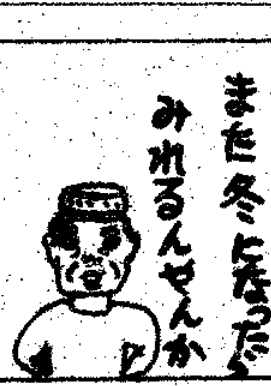 また冬になったら
みれるんせんか